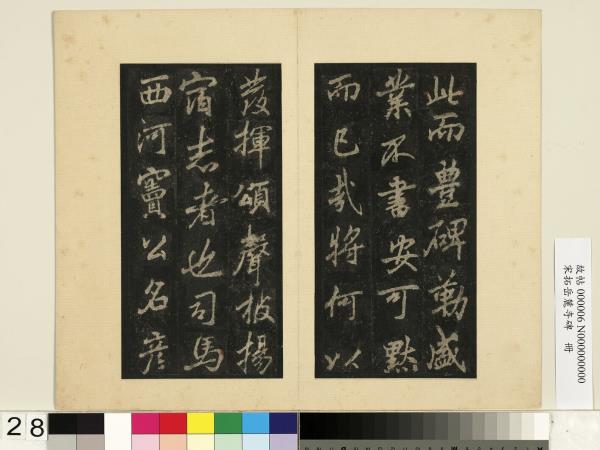 此而豊碑勒盛
業不書安可黙
而已哉將何以
發揮頌聲披揚
宿志者也司馬
西河竇公名彦
故帖 000006 N000000000
宋拓岳麓寺碑 冊
28